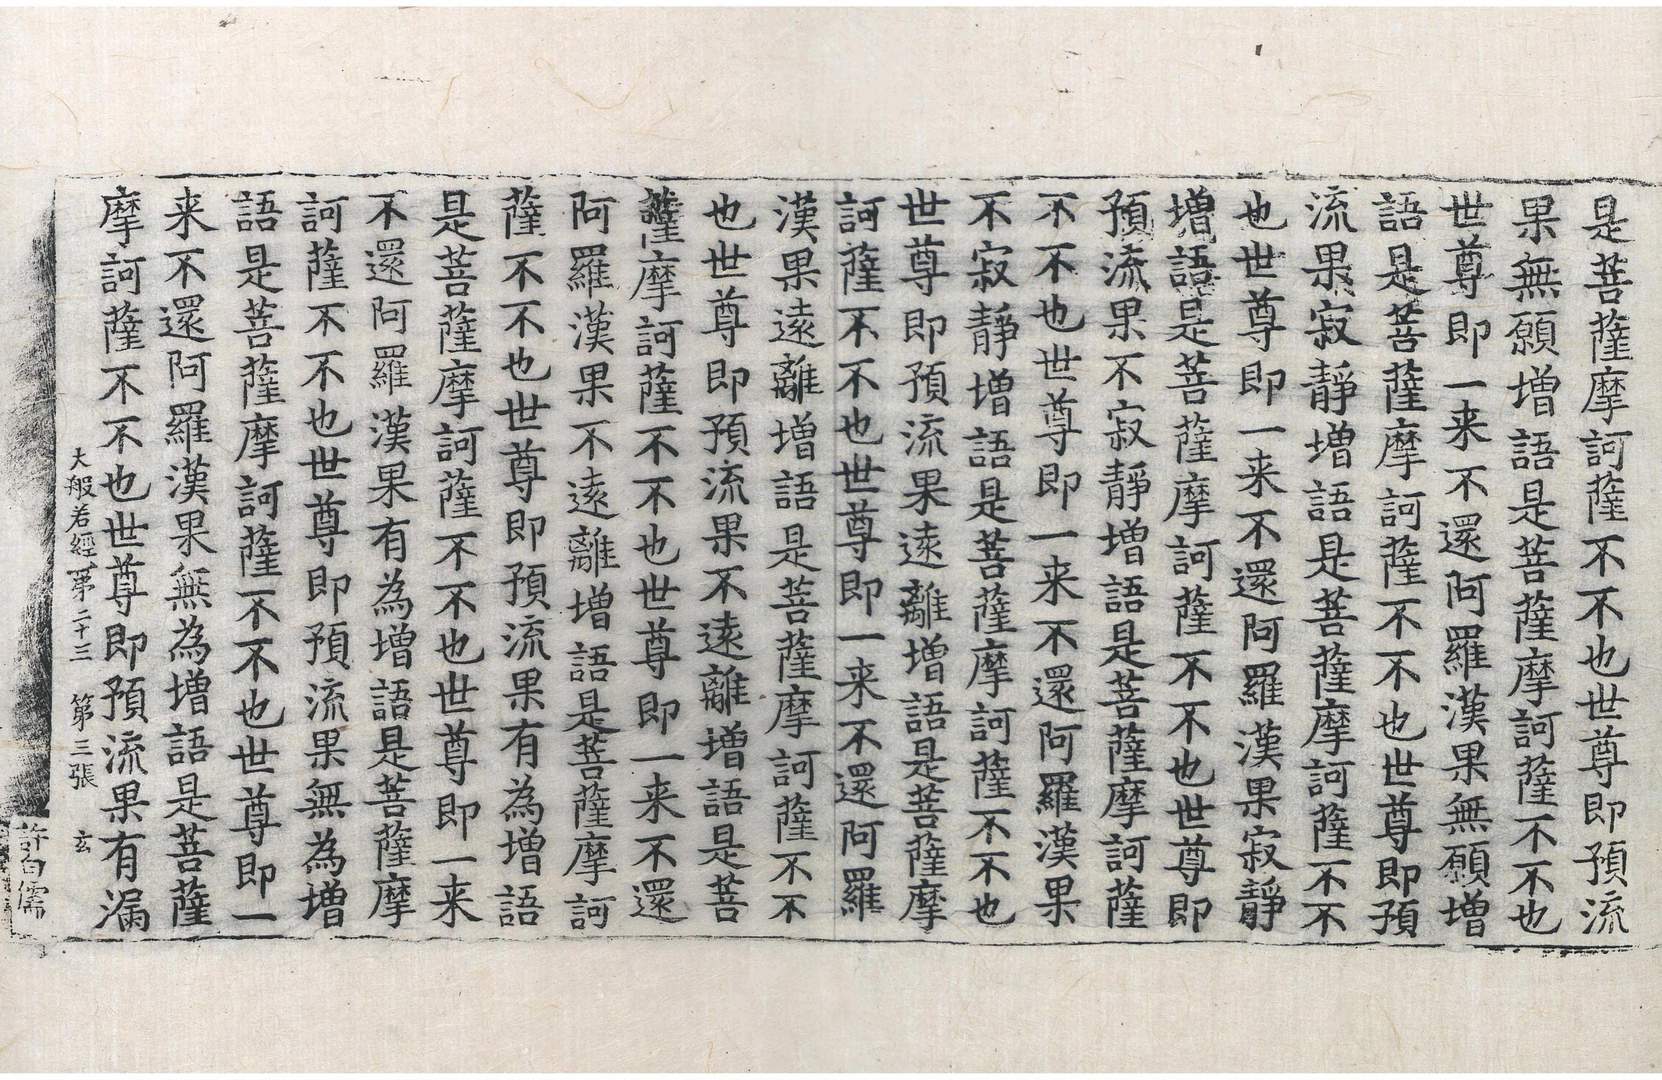 是菩薩摩訶薩不不也世尊即預流
果無願增語是菩薩摩訶薩不不也
世尊即一来不還阿羅漢果無願增
語是菩薩摩訶薩不不也世尊即預
流果寂靜增語是菩薩摩訶薩不不
也世尊即一来不還阿羅漢果寂靜
增語是菩薩摩訶薩不不也世尊即
預流果不寂靜增語是菩薩摩訶薩
不不也世尊即一来不還阿羅漢果
不寂靜增語是菩薩摩訶薩不不也
世尊即預流果遠離增語是菩薩摩
訶薩不不也世尊即一来不還阿羅
漢果遠離增語是菩薩摩訶薩不不
也世尊即預流果不遠離增語是菩
薩摩訶薩不不也世尊即一来不還
阿羅漢果不遠離增語是菩薩摩訶
薩不不也世尊即預流果有為增語
是菩薩摩訶薩不不也世尊即一来
不還阿羅漢果有為增語是菩薩摩
訶薩不不也世尊即預流果無為增
語是菩薩摩訶薩不不也世尊即一
来不還阿羅漢果無為增語是菩薩
摩訶薩不不也世尊即預流果有漏
大般若經第二十三 第三張 玄
許白儒